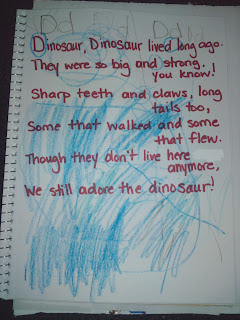 Dinosaur, Dinosaur lived long ago.
They were so big and strong,
you know!
Sharp teeth and claws, long
tails too,
Some that walked and some
that flew.
Though they don't live here
anymore,
We still adore the dinosaur!